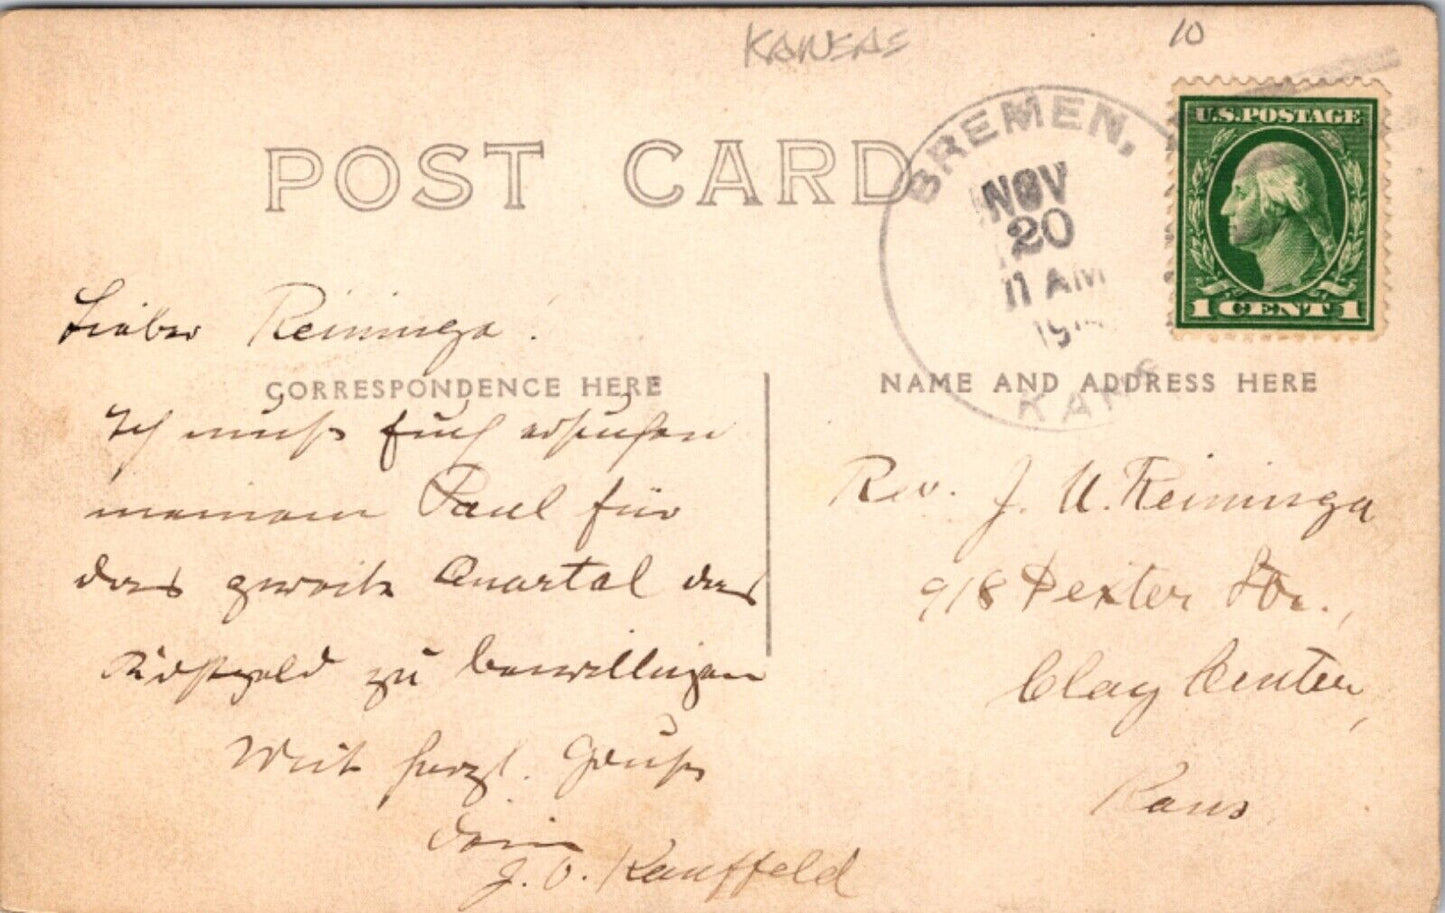 KANSAS
10
POST CARD
BREMEN,
NOV
20
11 AM
19
KANS
U.S. POSTAGE
1 CENT 1
Lieber Reininga!
CORRESPONDENCE HERE
Ich muß Euch ersuchen
meinem Paul für
das zweite Quartal das
Kostgeld zu bewilligen
Mit herzl. Gruß
Dein
J. O. Kauffeld
NAME AND ADDRESS HERE
Rev. J. U. Reininga
918 Dexter Str.,
Clay Center,
Kans